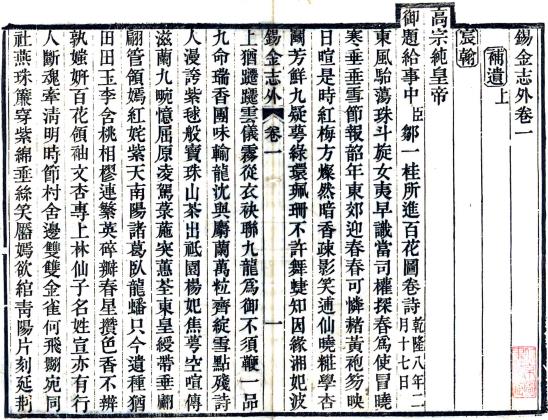 錫金志外卷一
補遺上
宸翰
高宗純皇帝
御題給事中臣鄒一桂所進百花圖卷詩乾隆八年二月十七日
東風駘蕩珠斗旋女夷早識當司權探春爲使冒曉
寒垂垂雪節報韶年東郊迎春春可憐赭黃袍笏映
日暄是時紅梅方燦然暗香疎影笑逋仙曉粧學杏
闘芳鮮九疑萼綠環珮珊不許舞蜨知因緣湘妃波
上猶躚躚雲儀霧從衣袂聯九龍爲御不須鞭一品
錫金志外 卷一 一
九命瑞香團味輸龍沈與麝蘭萬粒齊綻雪點殘詩
人漫誇紫毬般寶珠山茶出祇園楊妃焦萼空喧傳
滋蘭九畹憶屈原凌駕菉葹突蕙荃東皇綬帶垂翩
翩管領嫣紅姹紫天南陽諸葛臥龍蟠只今遺種猶
田田玉李含桃相樛連繁英碎瓣春星攢色香不辨
孰嬢妍百花領袖文杏專上林仙子名姓宣亦有行
人斷魂牽清明時節村舍邊雙雙金雀何飛翾宛同
社燕珠簾穿紫綿垂絲笑靨嫣欲綰青陽片刻延荆